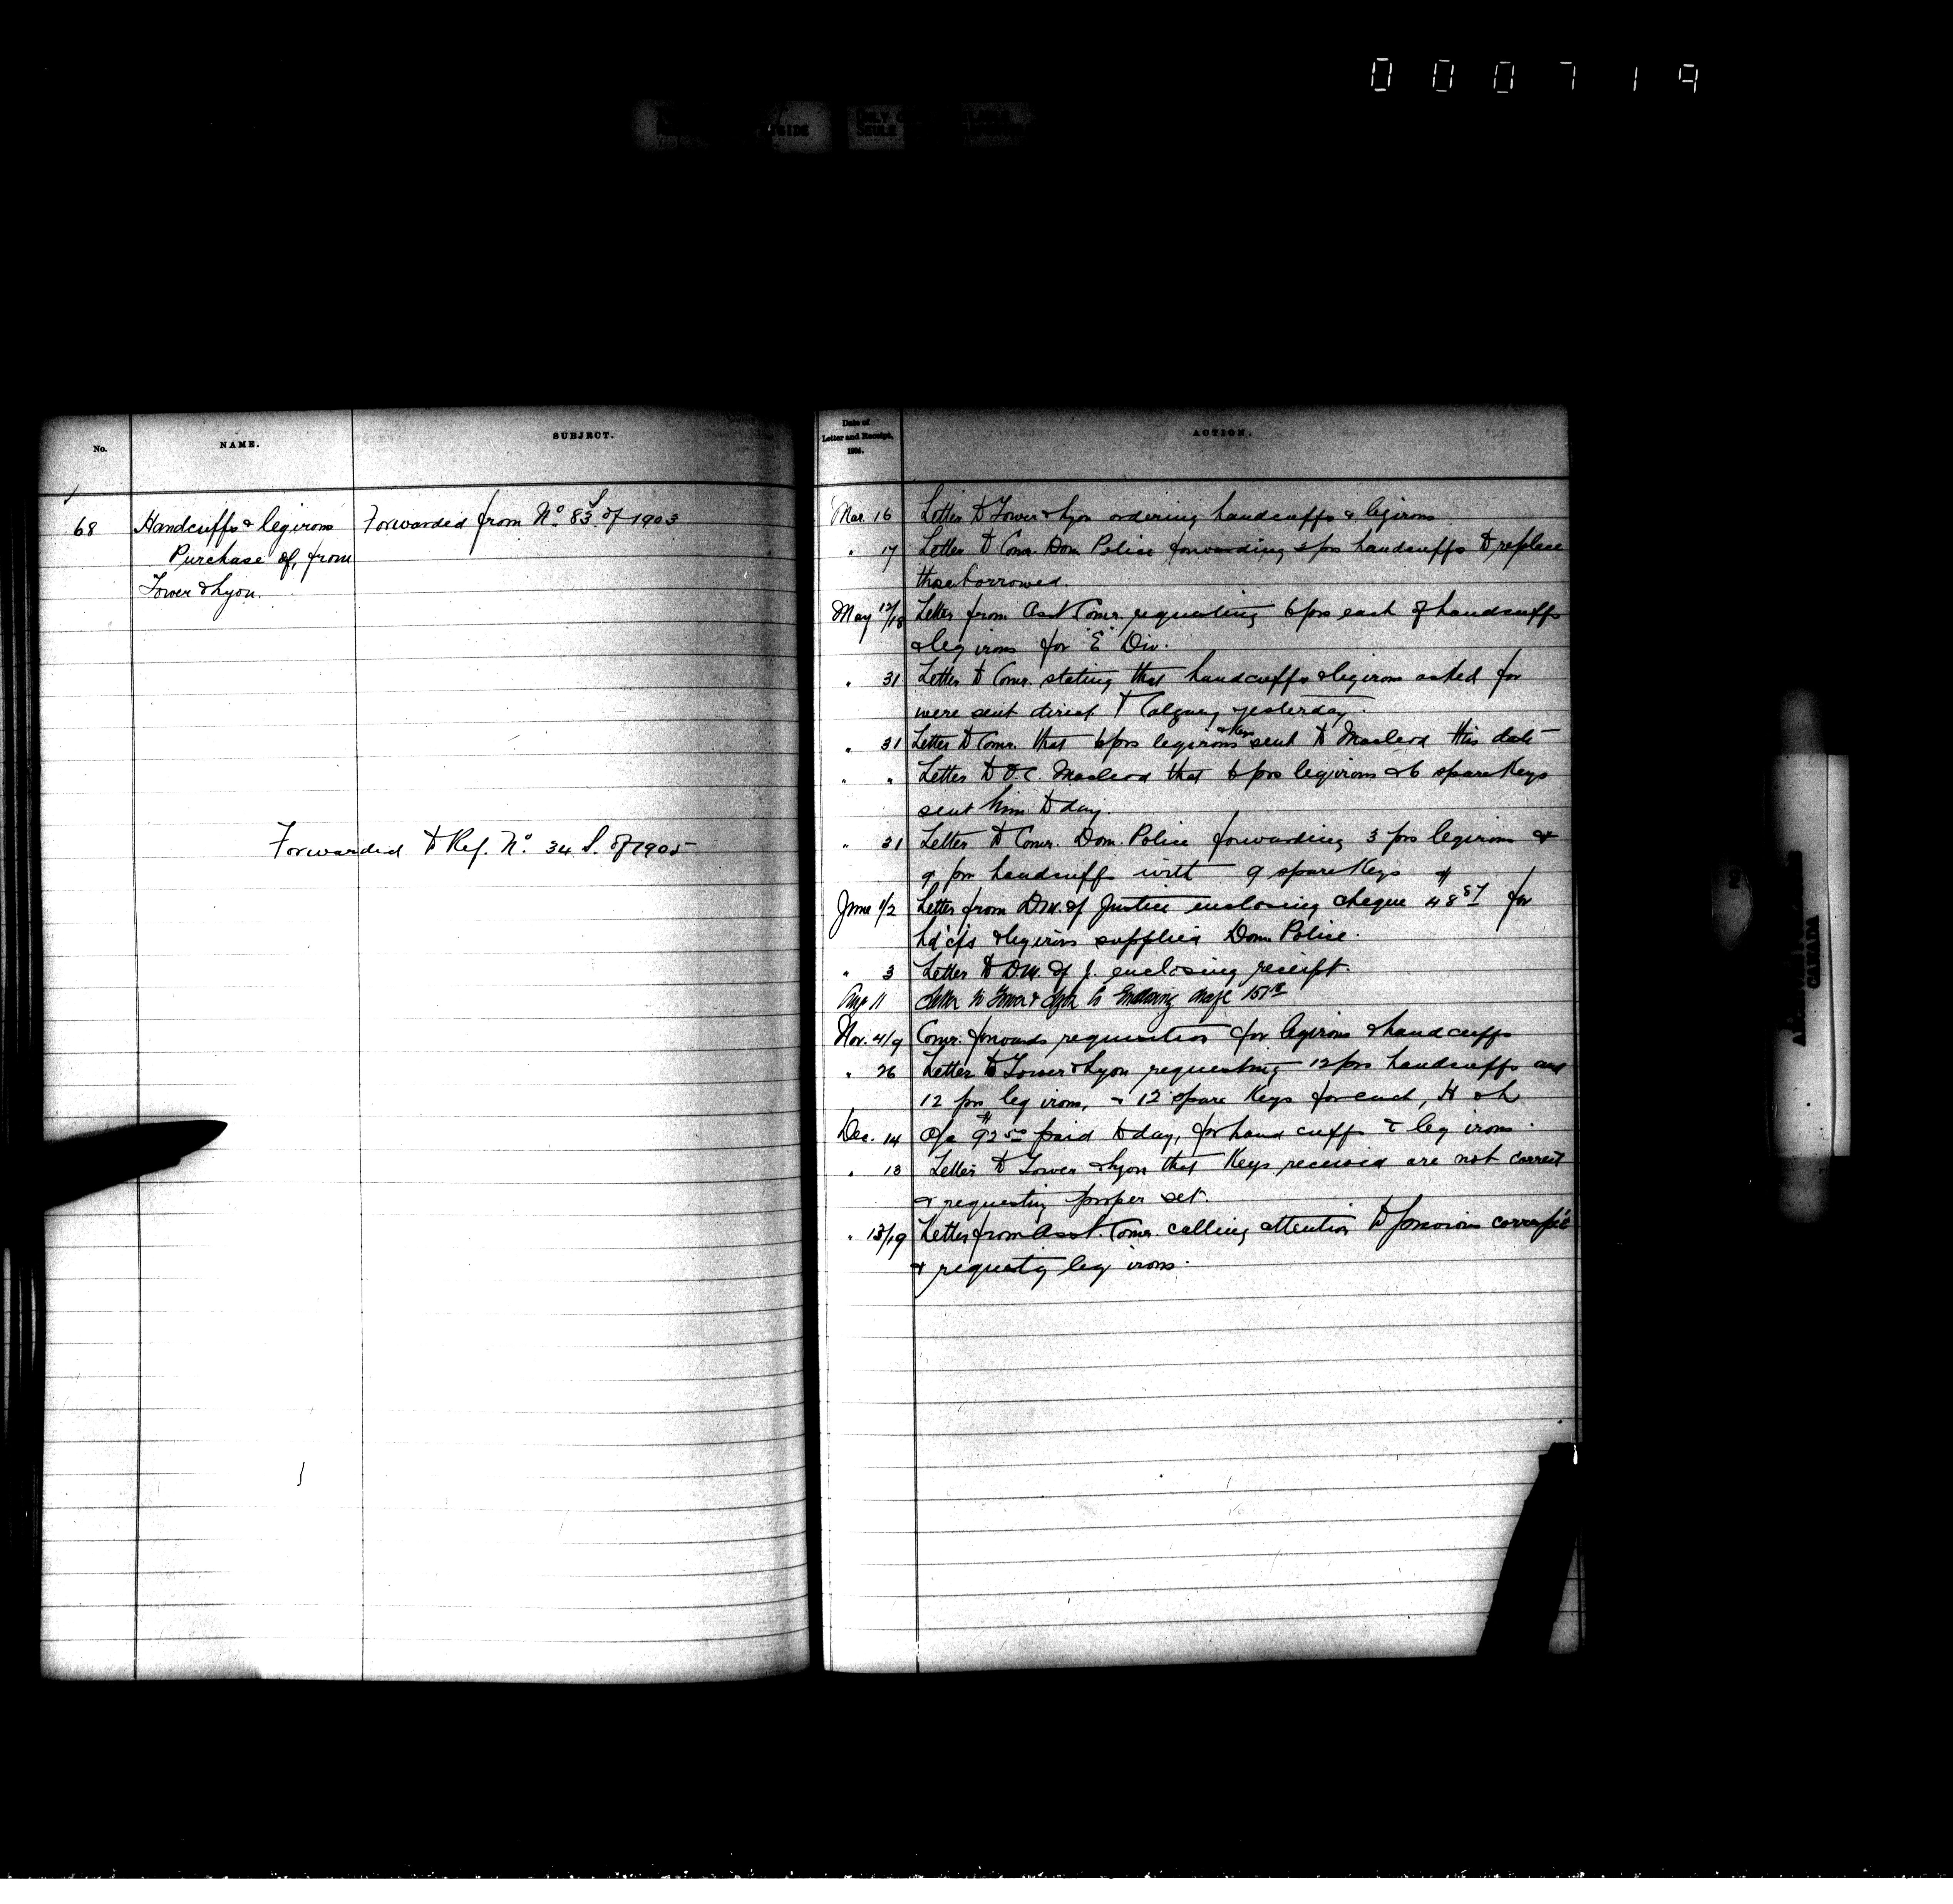 000719
No.
NAME.
SUBJECT.
68
Handcuffs & legirons
Purchase of, from
Tower & Lyon.
Forwarded from No. 83 S. of 1903
Forwarded to Ref. No. 34 S. of 1905
Date of
Letter and Receipt,
1904.
ACTION.
Mar. 16 Letter to Tower & Lyon ordering handcuffs & legirons
" 17 Letter to Comr. Dom. Police forwarding prs handcuffs to replace
those borrowed.
May 12/18 Letter from Asst Comr. requesting 6 prs each of handcuffs
& leg irons for "E" Div.
" 31 Letter to Comr. stating that handcuffs & legirons asked for
were sent direct to Calgary yesterday.
" 31 Letter to Comr. that 6 prs legirons & keys sent to Macleod this date
" " Letter to O.C. Macleod that 6 prs legirons & 6 spare keys
sent him to day.
" 31 Letter to Comr. Dom. Police forwarding 3 prs legirons &
9 prs handcuffs with 9 spare keys
June 1/2 Letter from D.M. of Justice enclosing cheque $48 87 for
hd'cfs & leg irons supplied Dom. Police.
" 3 Letter to D.M. of J. enclosing receipt.
Aug 11 Letter to Tower & Lyon Enclosing
Nov. 4/9 Comr. forwards requisition for legirons & handcuffs
" 26 Letter to Tower & Lyon requesting 12 prs handcuffs and
12 prs leg irons, & 12 spare keys for each, H & L
Dec. 14 O/a $92 50 paid to day, for hand cuffs & leg irons.
" 13 Letter to Tower & Lyon that keys received are not correct
& requesting proper set.
" 13/19 Letter from Asst. Comr. calling attention to previous corresp'ce
& requestg leg irons.
CANADA